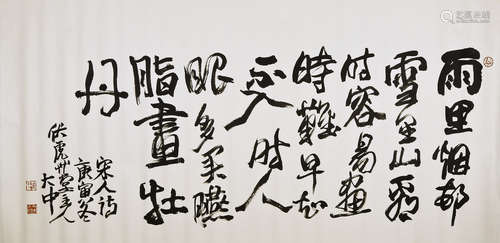 雨里烟邨
雪里山看
时容易画
時難早知
不入时人
眼多买臙
脂畫牡
丹
宋人诗
庚寅冬
伏虎草堂主人
大中